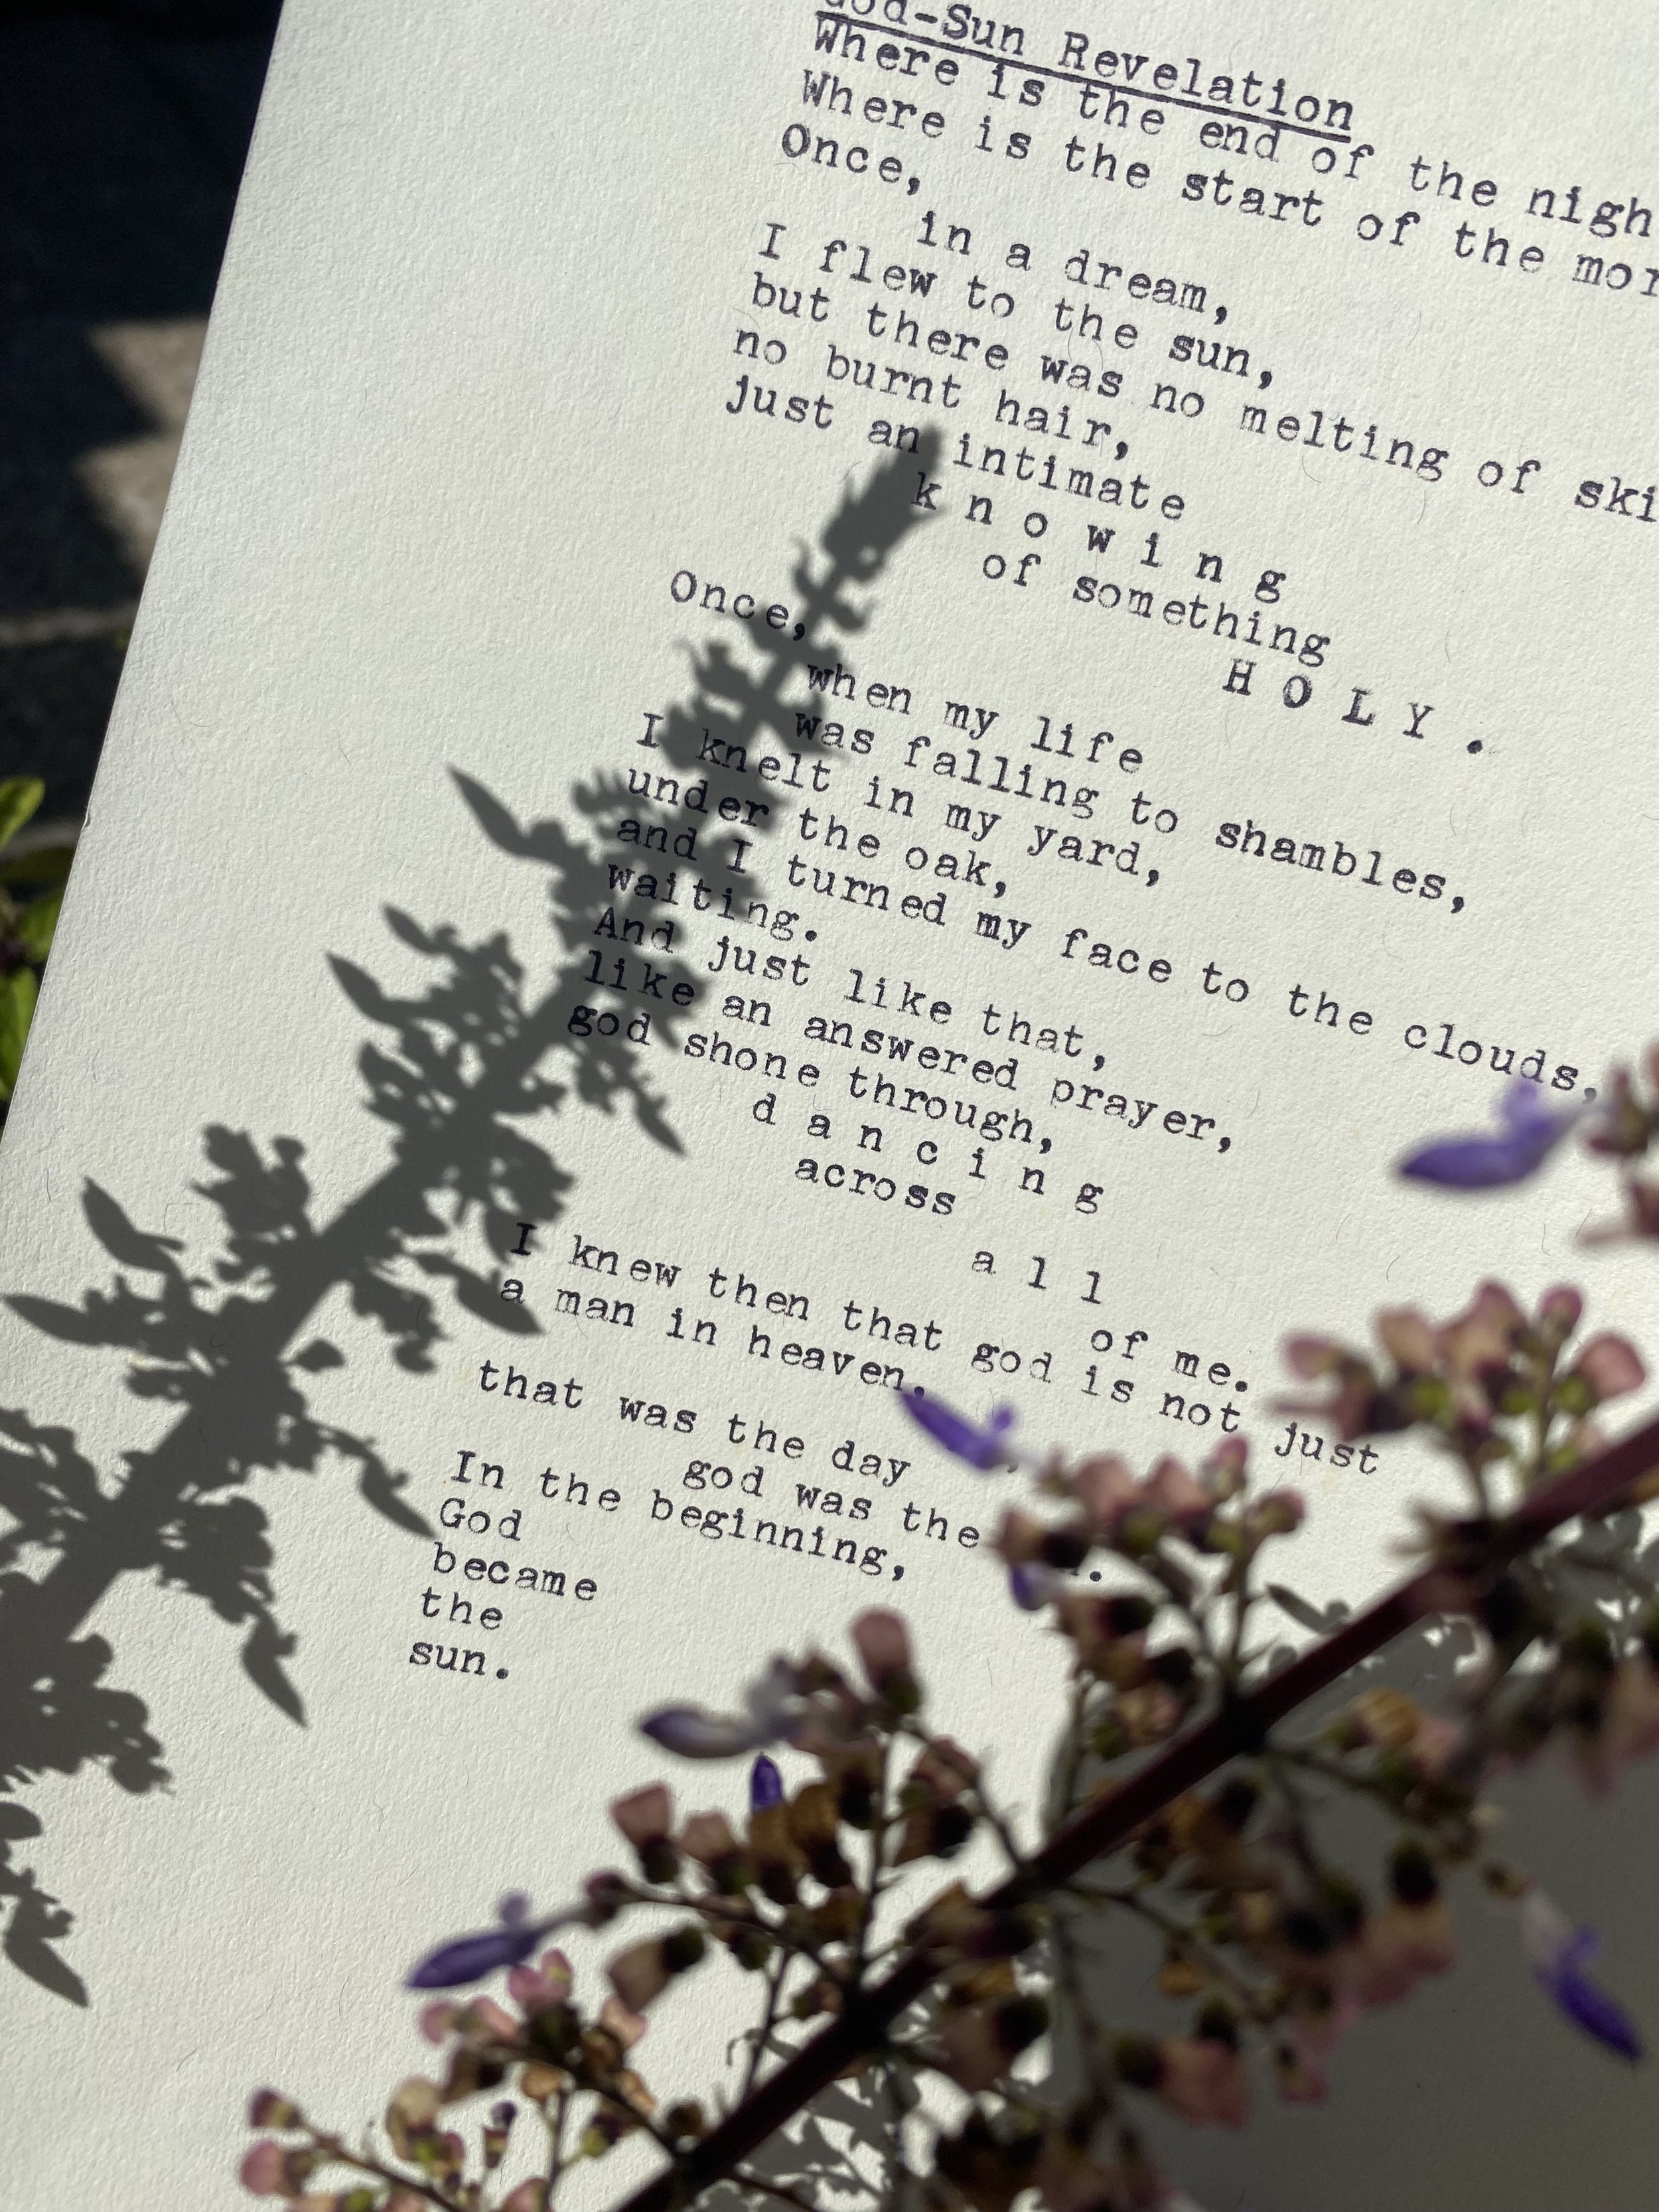 God-Sun Revelation
Where is the end of the nigh
Where is the start of the mor
Once,
in a dream,
I flew to the sun,
but there was no melting of ski
no burnt hair,
just an intimate
k n o w i n g
of something
H O L Y .
Once,
when my life
was falling to shambles,
I knelt in my yard,
under the oak,
and I turned my face to the clouds,
waiting.
And just like that,
like an answered prayer,
god shone through,
d a n c i n g
across
a l l
of me.
I knew then that god is not just
a man in heaven.
that was the day
god was the
In the beginning,
God
became
the
sun.